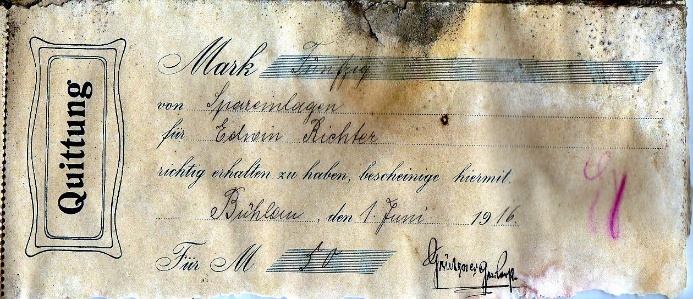 Quittung
Mark Fünfzig
von Spareinlagen
für Edwin Richter
richtig erhalten zu haben, bescheinige hiermit.
Bühlau, den 1. Juni 1916
Für M 50